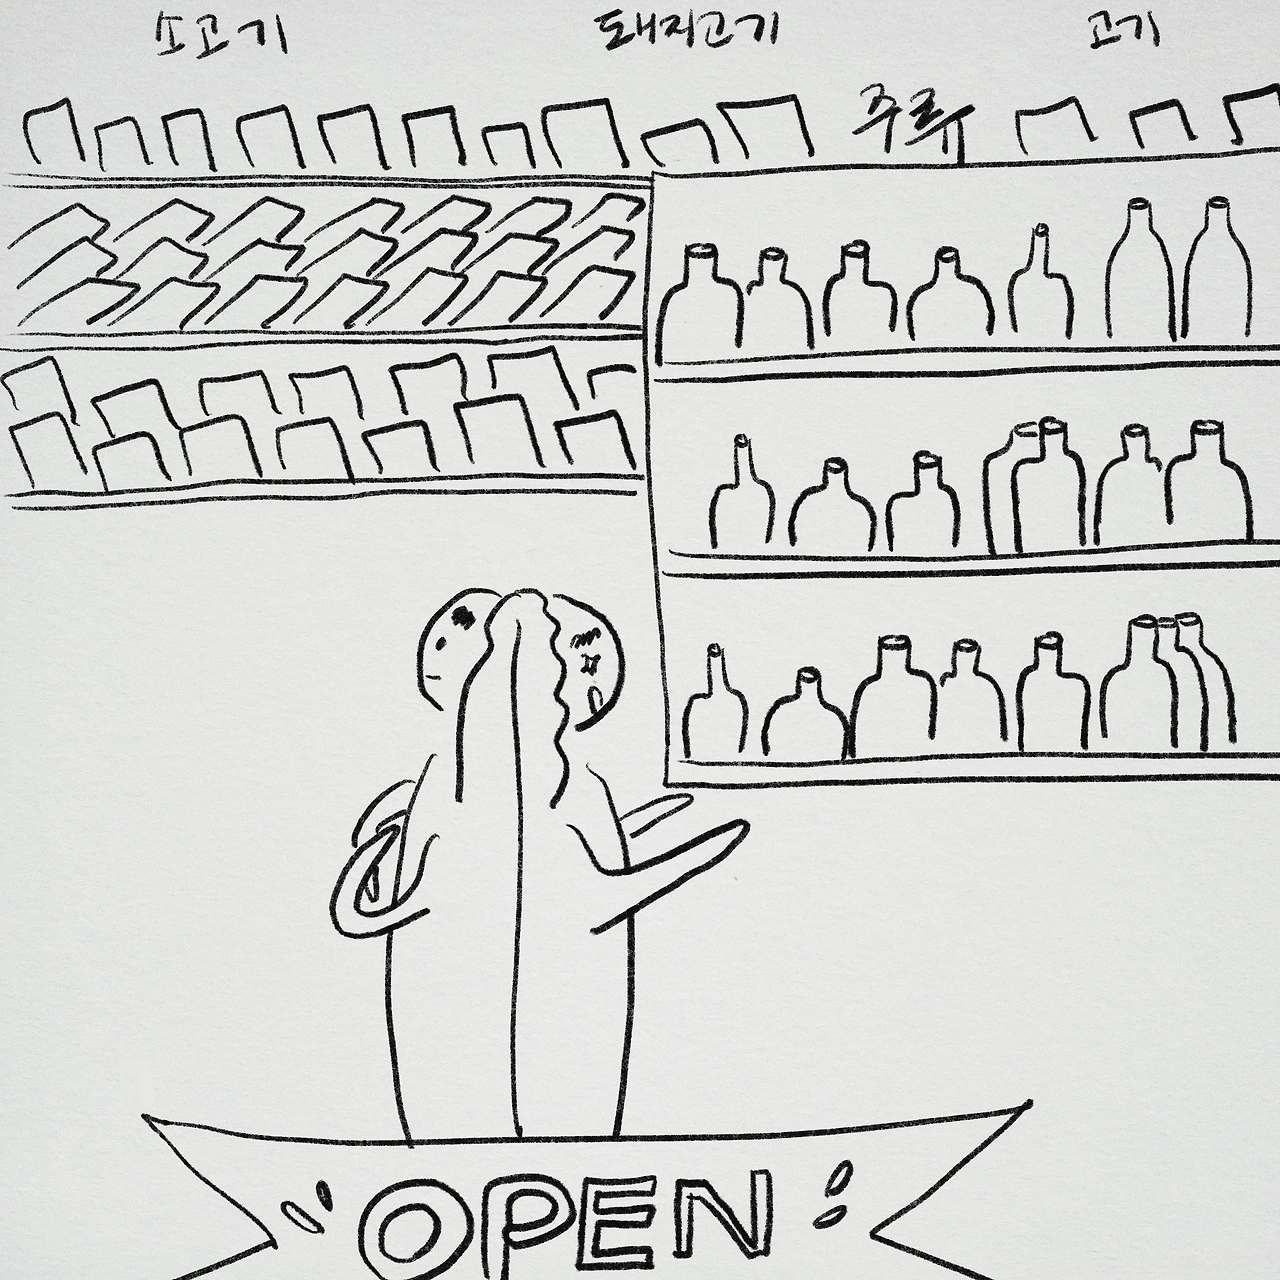 소고기 돼지고기 고기
주류
OPEN